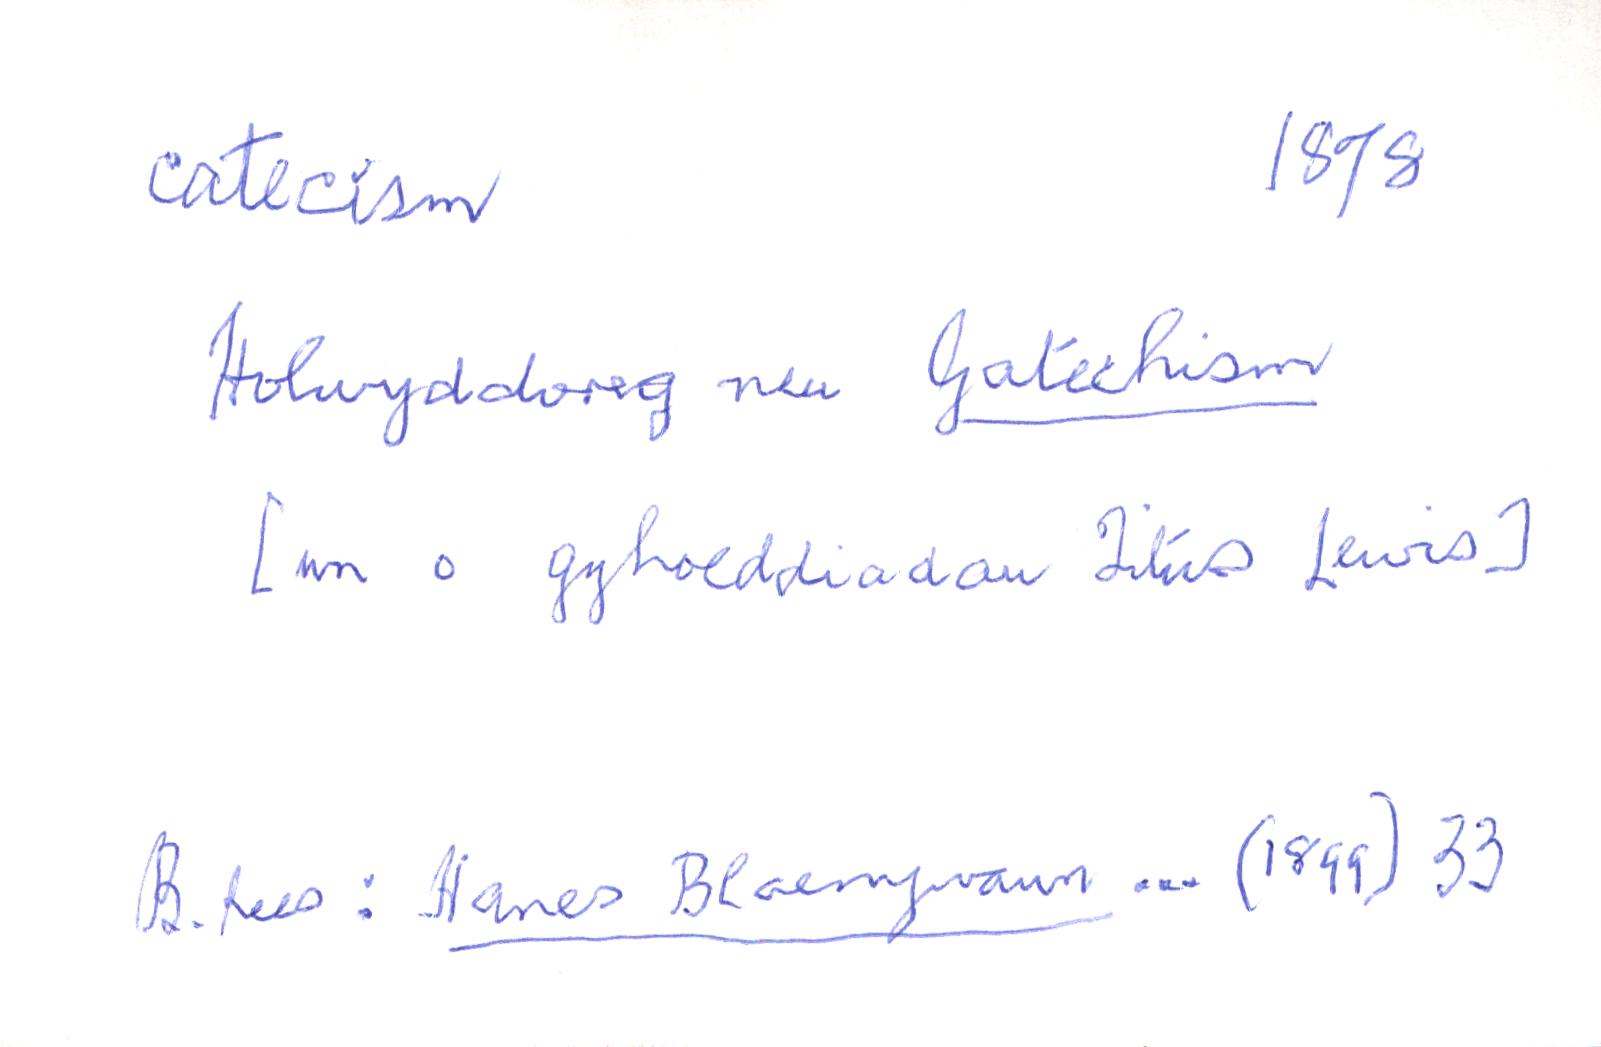 catecism 1878
Holwyddoreg neu Gatechism
[un o gyhoeddiadau Titus Lewis]
B. Rees : Hanes Blaenywaun ... (1899) 33